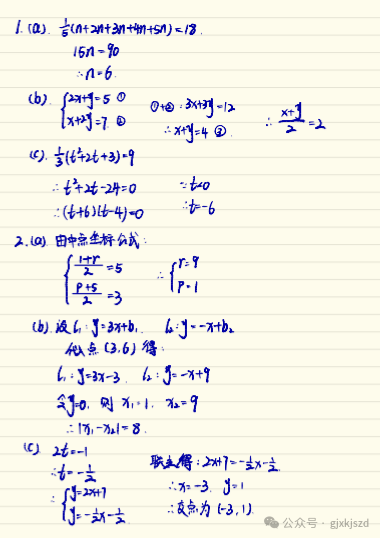 1. (a). 1/5(n+2n+3n+4n+5n)=18.
15n=90
∴n=6.
(b). {2x+y=5 ①
x+2y=7. ②
①+②: 3x+3y=12
∴x+y=4 ③.
∴ (x+y)/2=2
(c). 1/3(t²+2t+3)=9
∴t²+2t-24=0
∴(t+6)(t-4)=0
∵t<0
∴t=-6
2. (a) 由中点坐标公式:
{(1+r)/2=5
(p+5)/2=3
∴{r=9
p=1
(b) 设l₁:y=3x+b₁. l₂:y=-x+b₂
代入点(3,6)得:
l₁:y=3x-3. l₂:y=-x+9
令y=0, 则 x₁=1, x₂=9
∴|x₁-x₂|=8.
(c) 2t=-1
∴t=-1/2
∴{y=2x+7
y=-1/2x-1/2.
联立得: 2x+7=-1/2x-1/2.
∴x=-3, y=1
∴交点为(-3,1).
公众号 · gjxkjszd